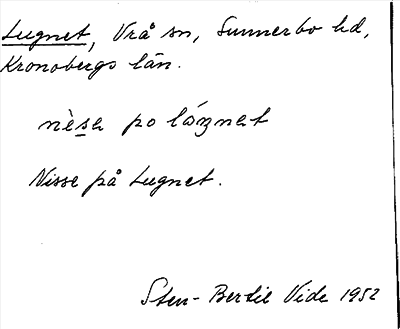 Lugnet, Vrå sn, Sunnerbo hd,
Kronobergs län.
nèsa po
Nisse på Lugnet.
Sten-Bertil Vide 1952